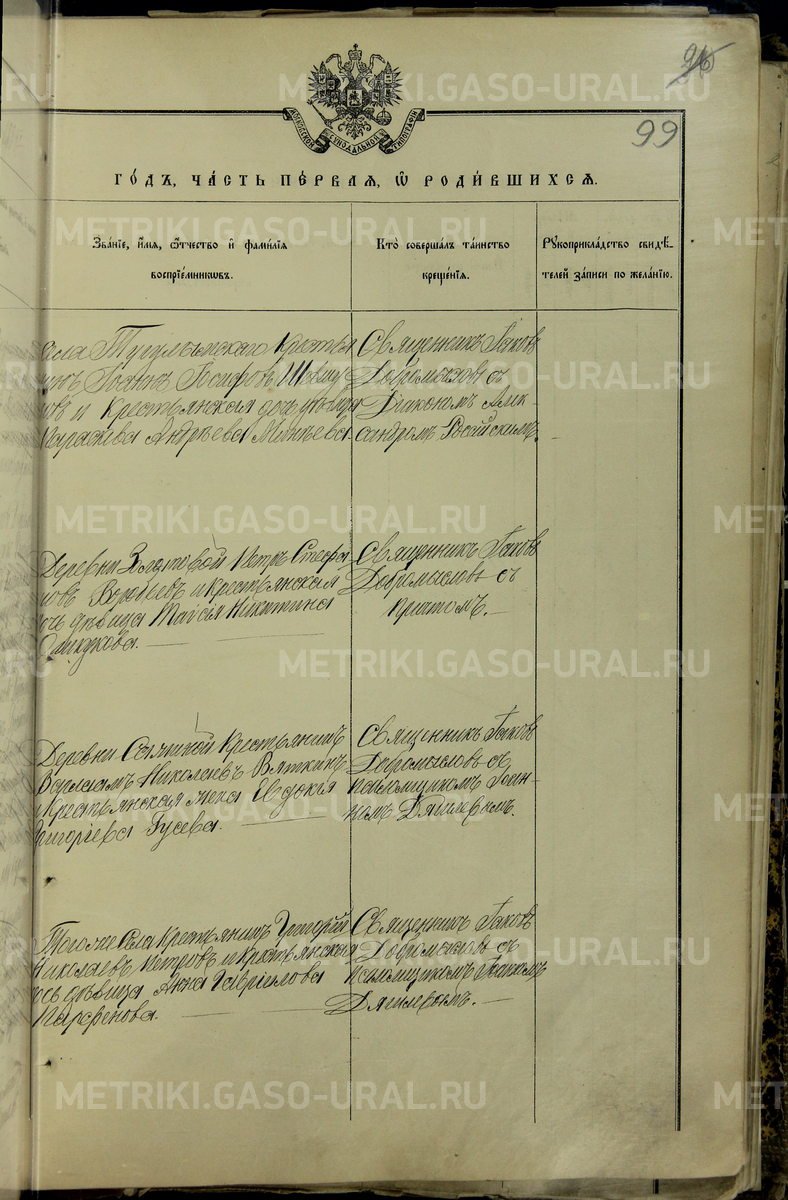 96
99
МОСКОВСКОЙ СѴНОДАЛЬНОЙ ТИПОГРАФІИ
ГО́ДЪ, ЧА́СТЬ ПЕ́РВАѦ, Ѡ҆ РОДИ́ВШИХСѦ.
Зва́нїе, и҆́мѧ, ѻ҆́тчество и҆ фами́лїѧ
воспрїе́мникѡвъ.
Кто̀ соверша́лъ та́инство
креще́нїѧ.
Рꙋкоприкла́дство свидѣ́-
телей за́писи по жела́нїю.
села Тугулымскаго крестья
нинъ Іоаннъ Іосифовъ
овъ и крестьянская дочь дѣвица
Параскева Андреева Минѣева
Священникъ Іаковъ
Добромысловъ съ
Діакономъ Алек-
сандромъ
Деревни Петръ Стефа
новъ Воробьевъ и крестьянская
дочь дѣвица Таисія Никитина
Священникъ Іаковъ
Добромысловъ съ
причтомъ.
Деревни крестьянинъ
Варлаамъ Николаевъ Вяткинъ
и крестьянская жена Евдокія
Григоріева Гусева.
Священникъ Іаковъ
Добромысловъ съ
псаломщикомъ Іоан-
номъ Дягилевымъ.
Того же села крестьянинъ Григорій
Николаевъ Петровъ и крестьянская
дочь дѣвица Анна Гавріилова
Парфенова.
Священникъ Іаковъ
Добромысловъ съ
псаломщикомъ Іоанномъ
Дягилевымъ.
METRIKI.GASO-URAL.RU